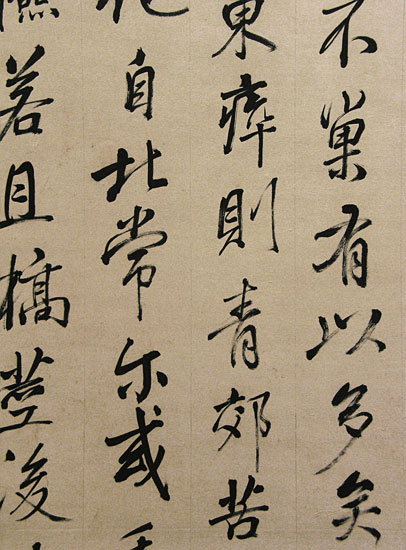 不巢有以多矣
東瘁則青郊苦
自北常尔或
若且槁莖